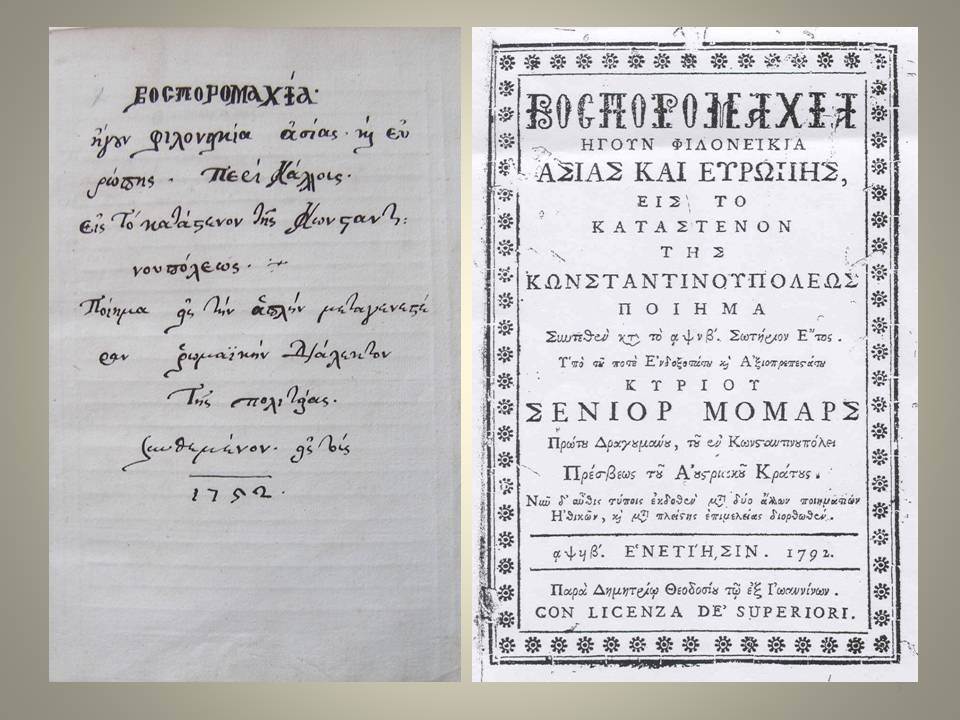 ΒΟΣΠΟΡΟΜΑΧΊΑ·
ἤγουν φιλονηκία ἀσίας· κὶ εὐ
ρώπης. Περὶ Κάλλοις·
Εἰς Τὸ κατάστενον τῆς Κωνσαντι:
νουπόλεως.
Ποίημα εἰς τὴν ἁπλὴν
ραν ῥωμαϊκὴν Διάλεκτον
Τῆς πολιτείας.
Συνθεμένον. εἰς τὶς
1752.
ΒΟΣΠΟΡΟΜΑΧΙΑ
ΗΓΟΥΝ ΦΙΛΟΝΕΙΚΙΑ
ΑΣΙΑΣ ΚΑΙ ΕΥΡΩΠΗΣ,
ΕΙΣ ΤΟ
ΚΑΤΑΣΤΕΝΟΝ
ΤΗΣ
ΚΩΝΣΤΑΝΤΙΝΟΥΠΟΛΕΩΣ
ΠΟΙΗΜΑ
Συντεθὲν κτ τὸ αψνβʹ. Σωτήριον Ἔτος.
Ὑπὸ τοῦ ποτὲ Ἐνδοξοτάτου κὶ Ἀξιοπρεπεστάτου
ΚΥΡΙΟΥ
ΣΕΝΙΟΡ ΜΟΜΑΡΣ
Πρώτου Δραγουμάνου, τοῦ ἐν Κωνσταντινουπόλει
Πρέσβεως τοῦ Αὐστριακοῦ Κράτους.
Νῦν δ' αὖθις τύποις ἐκδοθὲν μτ δύο ἄλλων ποιηματίων
Ἠθικῶν, κὶ μτ πλείστης ἐπιμελείας διορθωθέν.
αψηβʹ. ἘΝΕΤΙΗΣΙΝ. 1792.
Παρὰ Δημητρίῳ Θεοδοσίου τῷ ἐξ Ἰωαννίνων.
CON LICENZA DE' SUPERIORI.